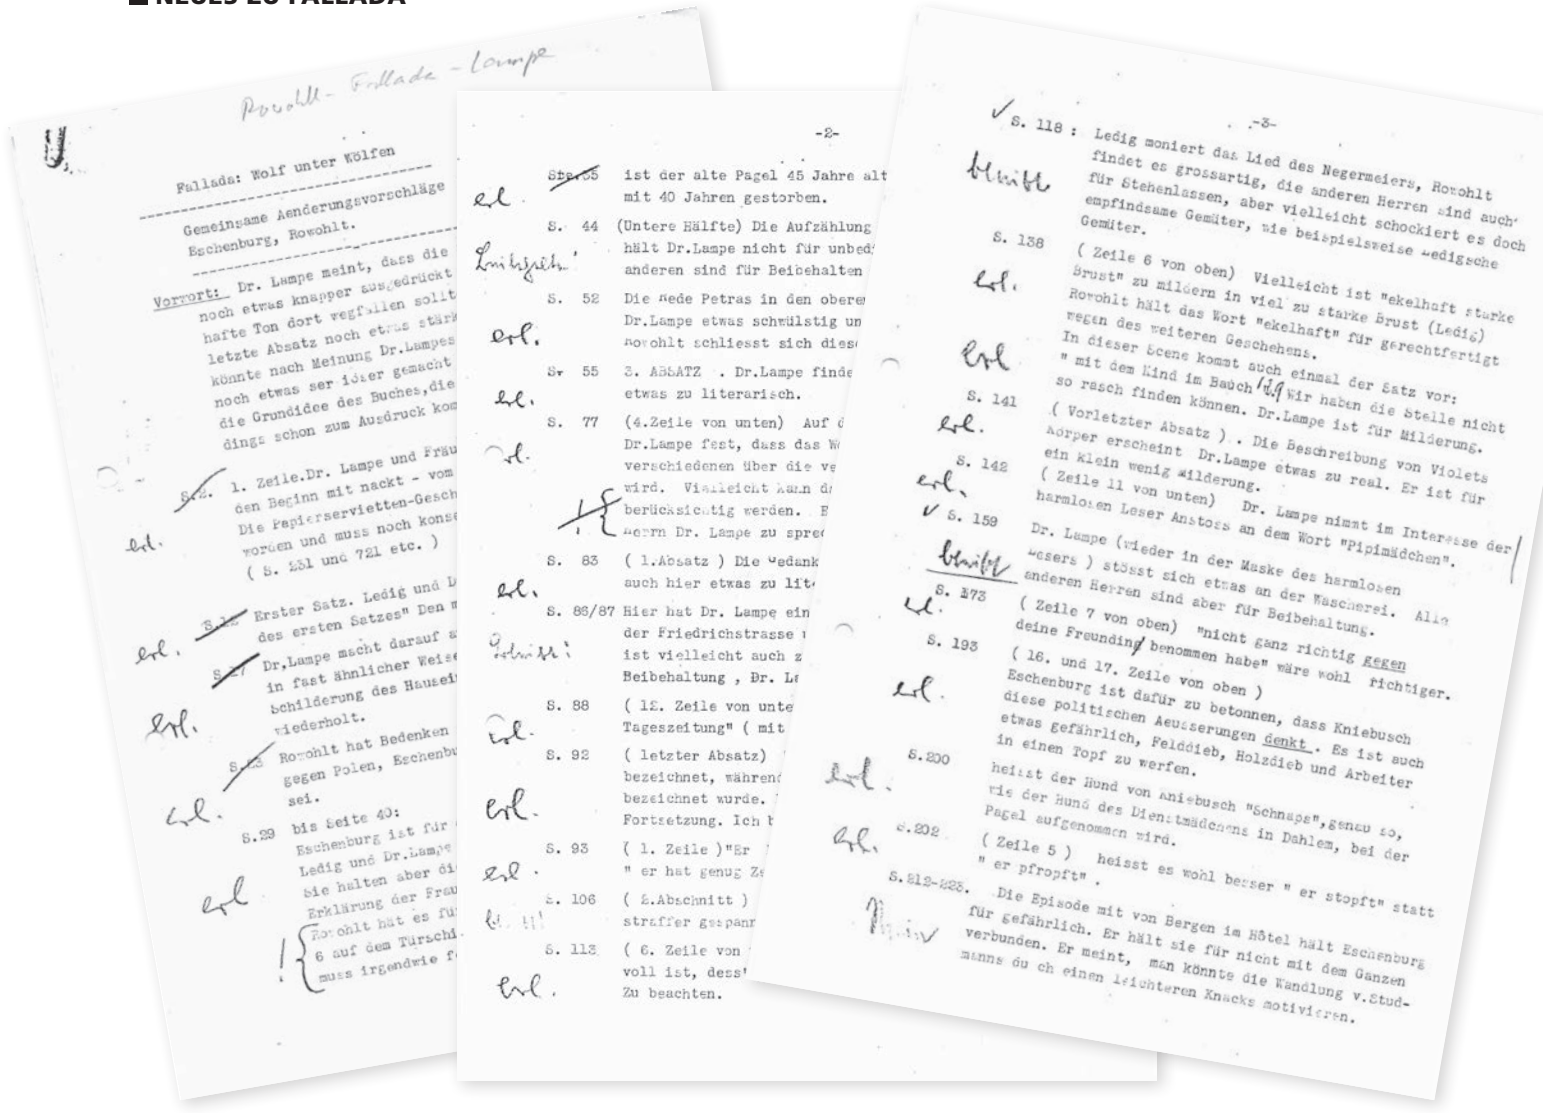 NEUES ZU FALLADA
Rowohlt - Fallada - Lampe
Fallada: Wolf unter Wölfen
Gemeinsame Aenderungsvorschläge
Eschenburg, Rowohlt.
Vorwort: Dr. Lampe meint, dass die
noch etwas knapper ausgedrückt
hafte Ton dort wegfallen sollt
letzte Absatz noch etwas stärk
könnte nach Meinung Dr.Lampes
noch etwas gemacht
die Grundidee des Buches,die
dings schon zum Ausdruck kom
S.2. 1. Zeile.Dr. Lampe und Fräu
den Beginn mit nackt - vom
Die Papierservietten-Gesch
worden und muss noch konse
erl. ( S. 251 und 721 etc. )
Erster Satz. Ledig und L
erl. des ersten Satzes" Den m
Dr.Lampe macht darauf a
in fast ähnlicher Weise
Schilderung des Hausei
erl. wiederholt.
Rowohlt hat Bedenken
gegen Polen, Eschenbu
erl. sei.
S.29 bis Seite 40:
Eschenburg ist für
Ledig und Dr.Lampe
Sie halten aber di
erl Erklärung der Frau
Rowohlt hat es fü
6 auf dem Türschi
! muss irgendwie f
-2-
55 ist der alte Pagel 45 Jahre alt
erl. mit 40 Jahren gestorben.
S. 44 (Untere Hälfte) Die Aufzählung
hält Dr.Lampe nicht für unbed
anderen sind für Beibehalten
S. 52 Die Rede Petras in den oberen
Dr.Lampe etwas schwülstig un
erl. Rowohlt schliesst sich dies
55 3. ABSATZ . Dr.Lampe finde
erl. etwas zu literarisch.
S. 77 (4.Zeile von unten) Auf d
erl. Dr.Lampe fest, dass das W
verschiedenen über die ve
wird. Vielleicht kann d
! berücksichtig werden. E
Herrn Dr. Lampe zu spre
S. 83 ( 1.Absatz ) Die Gedank
erl. auch hier etwas zu lit
S. 86/87 Hier hat Dr. Lampe ein
der Friedrichstrasse
ist vielleicht auch z
Beibehaltung , Dr. La
S. 88 ( 12. Zeile von unte
erl. Tageszeitung" ( mit
S. 92 ( letzter Absatz)
bezeichnet, während
erl. bezeichnet wurde.
Fortsetzung. Ich b
S. 93 ( 1. Zeile )"Er
erl. " er hat genug Ze
S. 106 ( 2.Abschnitt )
straffer gespann
S. 113 ( 6. Zeile von
voll ist, dess
erl. Zu beachten.
-3-
S. 118 : Ledig moniert das Lied des Negermeiers, Rowohlt
findet es grossartig, die anderen Herren sind auch
bleibt für Stehenlassen, aber vielleicht schockiert es doch
empfindsame Gemüter, wie beispielsweise Ledigsche
Gemüter.
S. 138 ( Zeile 6 von oben) Vielleicht ist "ekelhaft starke
erl. Brust" zu mildern in viel zu starke Brust (Ledig)
Rowohlt hält das Wort "ekelhaft" für gerechtfertigt
wegen des weiteren Geschehens.
erl In dieser Scene kommt auch einmal der Satz vor:
" mit dem Kind im Bauch Wir haben die Stelle nicht
so rasch finden können. Dr.Lampe ist für Milderung.
S. 141 ( Vorletzter Absatz ) . Die Beschreibung von Violets
erl. Körper erscheint Dr.Lampe etwas zu real. Er ist für
ein klein wenig Milderung.
S. 142 ( Zeile 11 von unten) Dr. Lampe nimmt im Interesse der
erl. harmlosen Leser Anstoss an dem Wort "Pipimädchen".
S. 159 Dr. Lampe (wieder in der Maske des harmlosen
bleibt Lesers ) stösst sich etwas an der Wascherei. Alle
anderen Herren sind aber für Beibehaltung.
S. 173 ( Zeile 7 von oben) "nicht ganz richtig gegen
erl. deine Freundin benommen habe" wäre wohl richtiger.
S. 193 ( 16. und 17. Zeile von oben )
Eschenburg ist dafür zu betonnen, dass Kniebusch
erl. diese politischen Aeusserungen denkt . Es ist auch
etwas gefährlich, Felddieb, Holzdieb und Arbeiter
in einen Topf zu werfen.
S.200 heisst der Hund von Kniebusch "Schnaps",genau so,
erl. wie der Hund des Dienstmädchens in Dahlem, bei der
Pagel aufgenommen wird.
S.202 ( Zeile 5 ) heisst es wohl besser " er stopft" statt
erl. " er pfropft" .
S.212-223. Die Episode mit von Bergen im Hôtel hält Eschenburg
für gefährlich. Er hält sie für nicht mit dem Ganzen
verbunden. Er meint, man könnte die Wandlung v.Stud-
manns du ch einen leichteren Knacks motivieren.